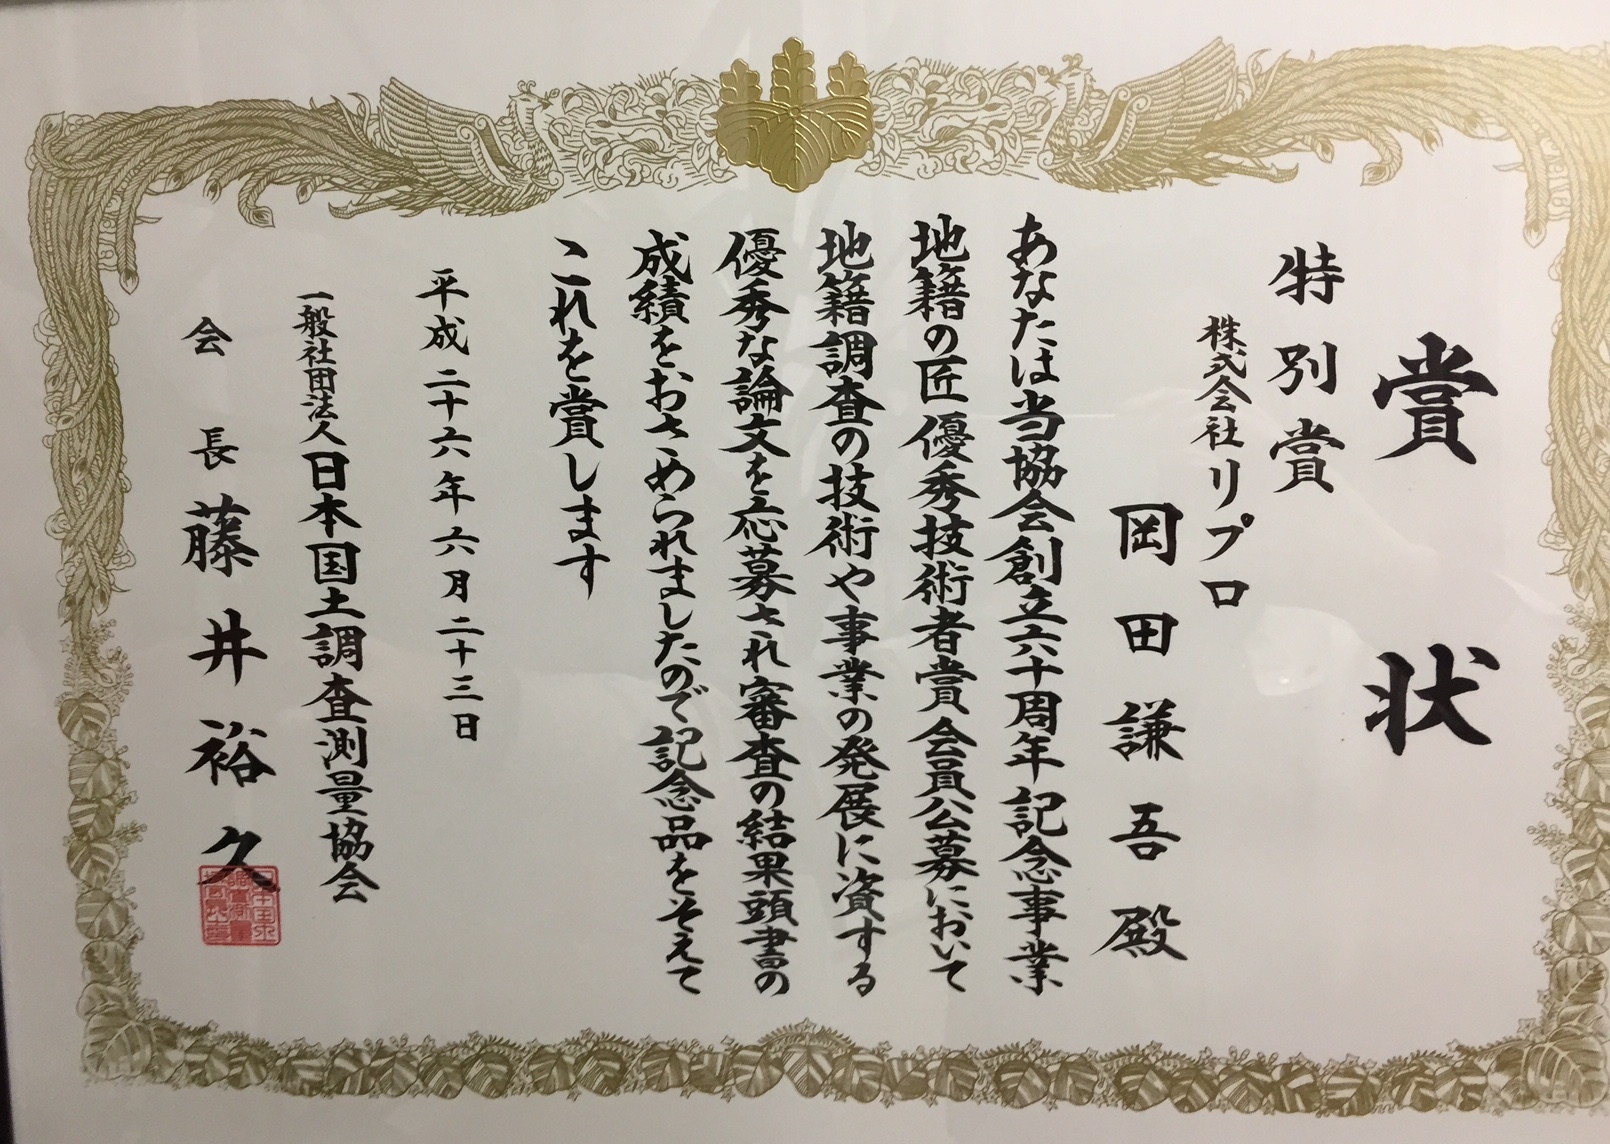 賞状
特別賞
株式会社リプロ
岡田謙吾殿
あなたは当協会創立六十周年記念事業
地籍の匠優秀技術者賞会員公募において
地籍調査の技術や事業の発展に資する
優秀な論文を応募され審査の結果頭書の
成績をおさめられましたので記念品をそえて
これを賞します
平成二十六年六月二十三日
一般社団法人日本国土調査測量協会
会長藤井裕久